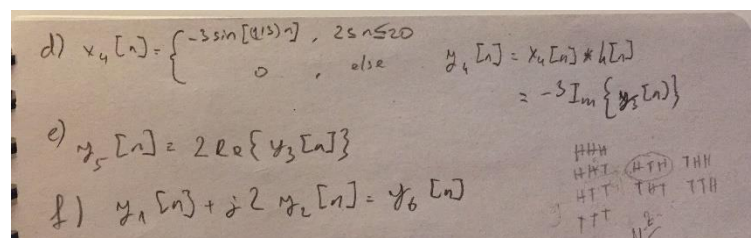 d) x₄[n] = { -3 sin[(1/3)n] , 2 ≤ n ≤ 20
0 , else
y₄[n] = x₄[n] * h[n]
= -3 Im{y₃[n]}
e) y₅[n] = 2 Re{y₃[n]}
f) y₁[n] + j2 y₂[n] = y₆[n]
HHH
HHT HTH THH
HTT THT TTH
TTT